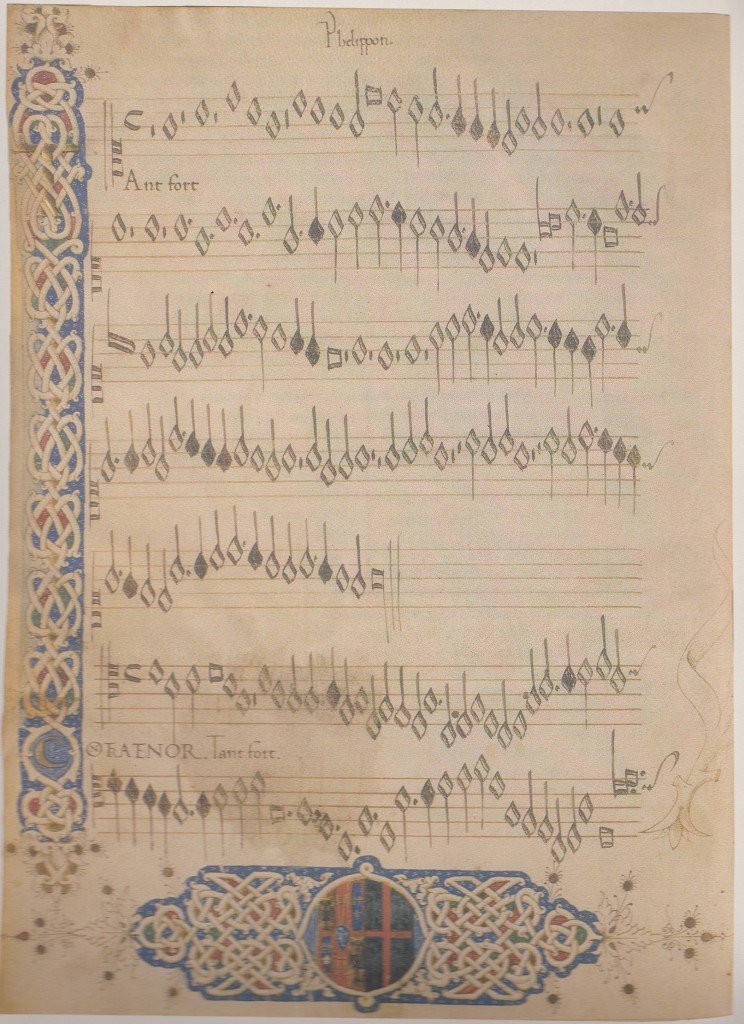 Phelippon.
Ant fort
TENOR. Tant fort.